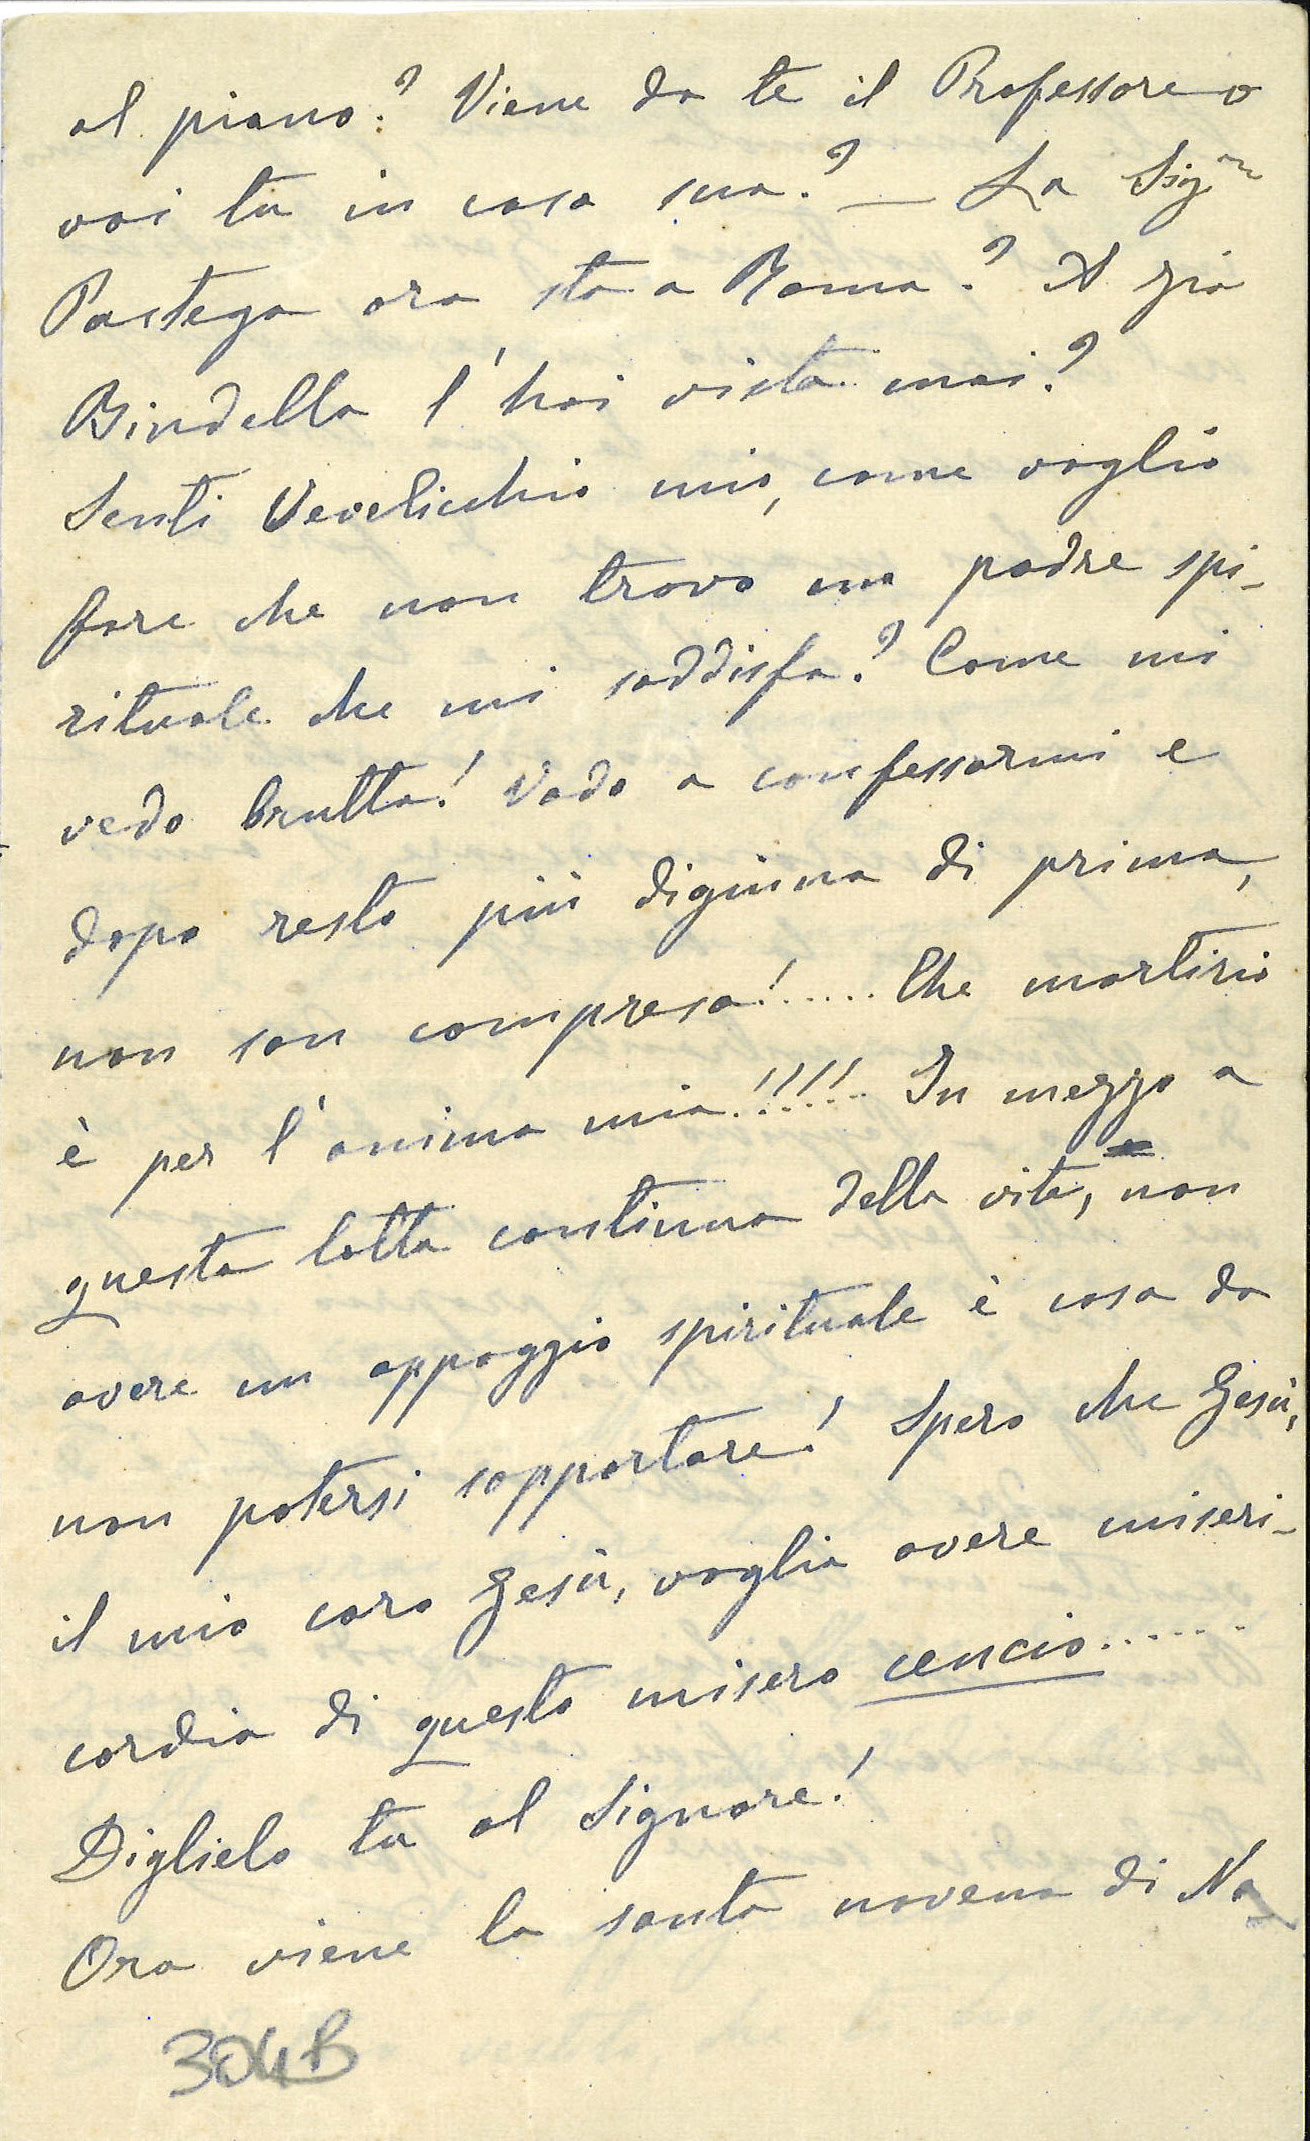 al piano? Viene da te il Professore o
vai tu in casa sua? — La Sig.ra
Pastega ora sta a Roma? A zia
Bindella l'hai vista mai?
Senti Vevelicchio mio, come voglio
fare che non trovo un padre spi-
rituale che mi soddisfa? Come mi
vedo brutta! Vado a confessarmi e
dopo resto più digiuna di prima,
non son compresa!...... Che martirio
è per l'anima mia!!!!!.. In mezzo a
questa lotta continua della vita, non
avere un appoggio spirituale è cosa da
non potersi sopportare! Spero che Gesù,
il mio caro Gesù, voglia avere miseri-
cordia di questo misero cencio.......
Diglielo tu al Signore!
Ora viene la santa novena di Na-
304B